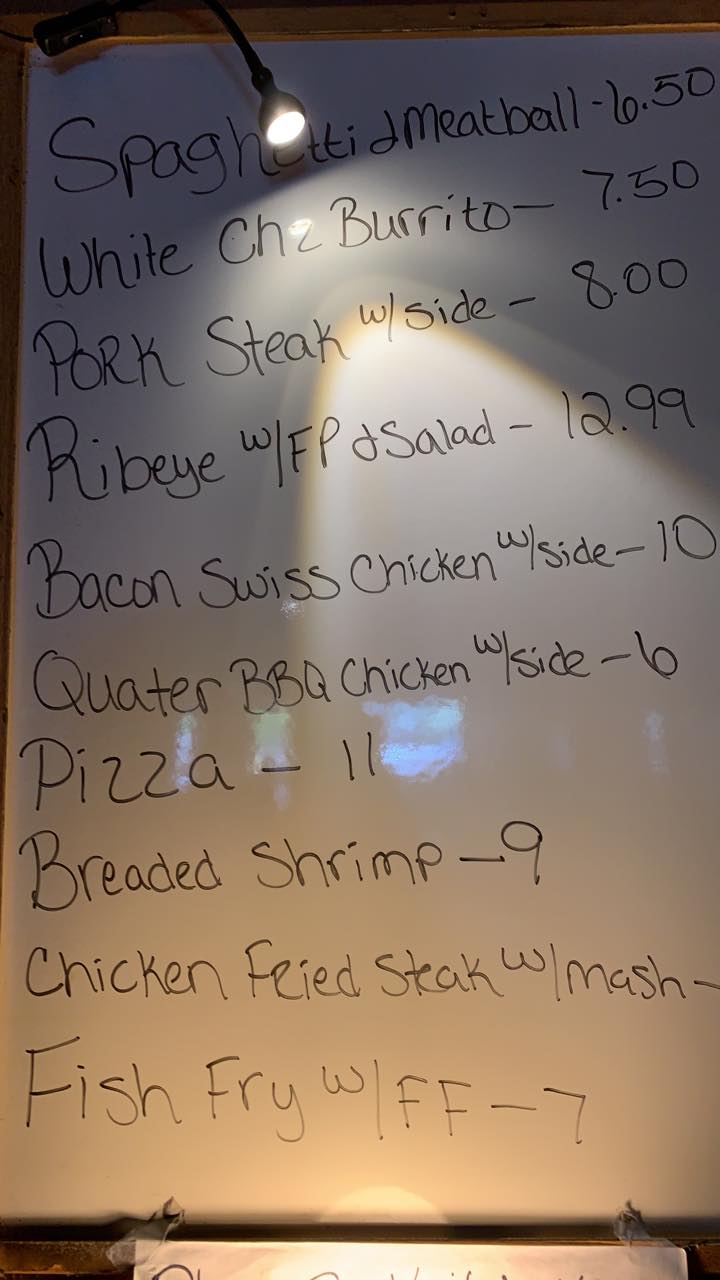 Spaghetti & Meatball - 6.50
White Chz Burrito - 7.50
Pork Steak w/side - 8.00
Ribeye w/FP & Salad - 12.99
Bacon Swiss Chicken w/side - 10
Quater BBQ Chicken w/side - 6
Pizza - 11
Breaded Shrimp - 9
Chicken Fried Steak w/mash -
Fish Fry w/FF - 7